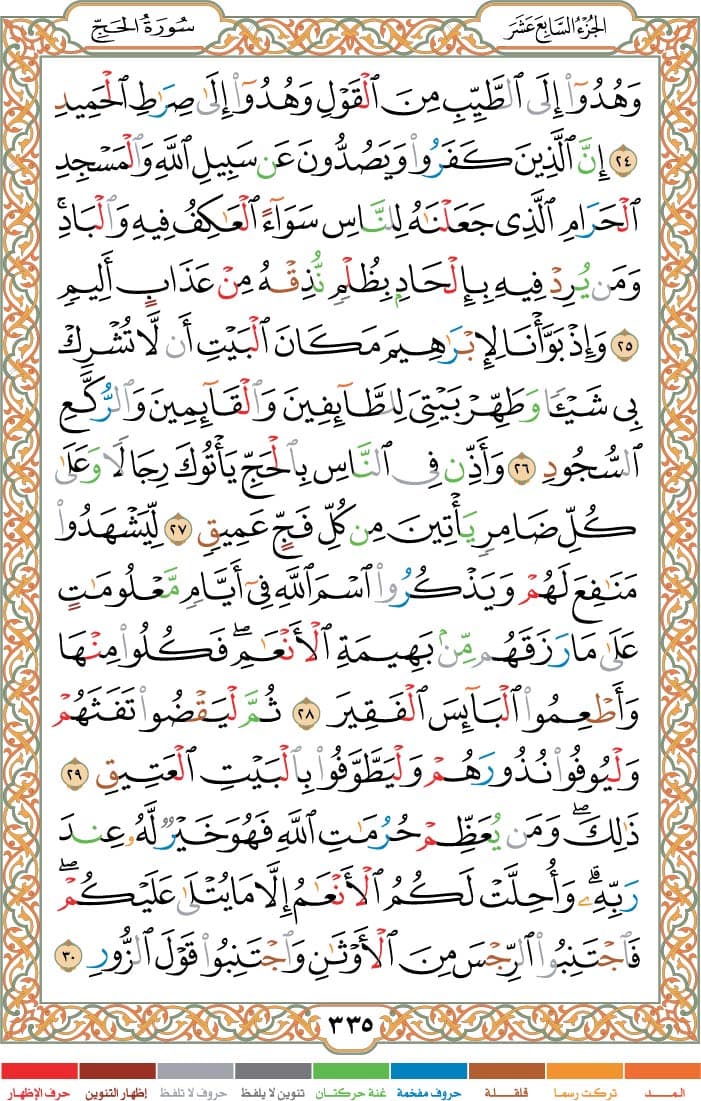 الجزء السابع عشر
سورة الحج
وَهُدُوٓا۟ إِلَى ٱلطَّيِّبِ مِنَ ٱلْقَوْلِ وَهُدُوٓا۟ إِلَىٰ صِرَٰطِ ٱلْحَمِيدِ
٢٤ إِنَّ ٱلَّذِينَ كَفَرُوا۟ وَيَصُدُّونَ عَن سَبِيلِ ٱللَّهِ وَٱلْمَسْجِدِ
ٱلْحَرَامِ ٱلَّذِى جَعَلْنَٰهُ لِلنَّاسِ سَوَآءً ٱلْعَٰكِفُ فِيهِ وَٱلْبَادِ ۚ
وَمَن يُرِدْ فِيهِ بِإِلْحَادٍۭ بِظُلْمٍ نُّذِقْهُ مِنْ عَذَابٍ أَلِيمٍ
٢٥ وَإِذْ بَوَّأْنَا لِإِبْرَٰهِيمَ مَكَانَ ٱلْبَيْتِ أَن لَّا تُشْرِكْ
بِى شَيْـًٔا وَطَهِّرْ بَيْتِىَ لِلطَّآئِفِينَ وَٱلْقَآئِمِينَ وَٱلرُّكَّعِ
ٱلسُّجُودِ ٢٦ وَأَذِّن فِى ٱلنَّاسِ بِٱلْحَجِّ يَأْتُوكَ رِجَالًا وَعَلَىٰ
كُلِّ ضَامِرٍ يَأْتِينَ مِن كُلِّ فَجٍّ عَمِيقٍ ٢٧ لِّيَشْهَدُوا۟
مَنَٰفِعَ لَهُمْ وَيَذْكُرُوا۟ ٱسْمَ ٱللَّهِ فِىٓ أَيَّامٍ مَّعْلُومَٰتٍ
عَلَىٰ مَا رَزَقَهُم مِّنۢ بَهِيمَةِ ٱلْأَنْعَٰمِ ۖ فَكُلُوا۟ مِنْهَا
وَأَطْعِمُوا۟ ٱلْبَآئِسَ ٱلْفَقِيرَ ٢٨ ثُمَّ لْيَقْضُوا۟ تَفَثَهُمْ
وَلْيُوفُوا۟ نُذُورَهُمْ وَلْيَطَّوَّفُوا۟ بِٱلْبَيْتِ ٱلْعَتِيقِ ٢٩
ذَٰلِكَ ۖ وَمَن يُعَظِّمْ حُرُمَٰتِ ٱللَّهِ فَهُوَ خَيْرٌ لَّهُۥ عِندَ
رَبِّهِۦ ۗ وَأُحِلَّتْ لَكُمُ ٱلْأَنْعَٰمُ إِلَّا مَا يُتْلَىٰ عَلَيْكُمْ ۖ
فَٱجْتَنِبُوا۟ ٱلرِّجْسَ مِنَ ٱلْأَوْثَٰنِ وَٱجْتَنِبُوا۟ قَوْلَ ٱلزُّورِ ٣٠
٣٣٥
المــد تركت رسما قلقـلة حروف مفخمة غنة حركتان تنوين لا يلفظ حروف لا تلفظ إظهار التنوين حرف الإظهار